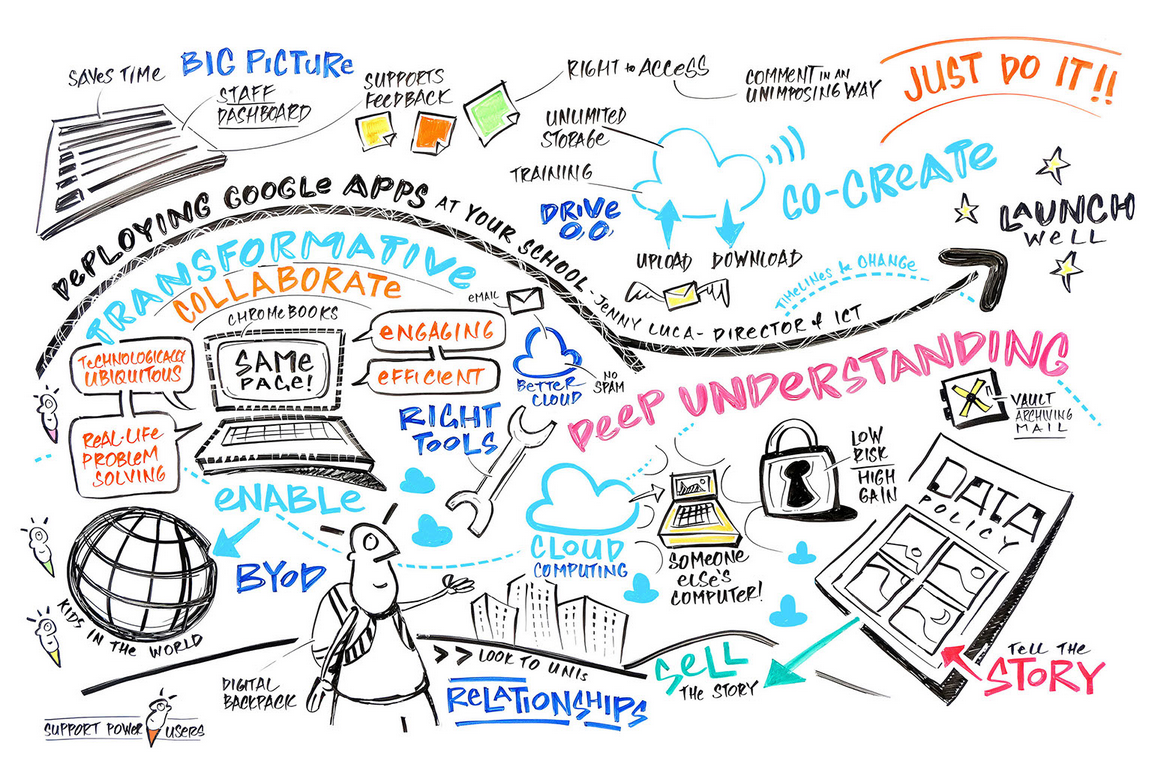 SAVES TIME
BIG PICTURE
STAFF
DASHBOARD
SUPPORTS
FEEDBACK
RIGHT to ACCESS
COMMENT IN AN
UNIMPOSING WAY
JUST DO IT!!
UNLIMITED
STORAGE
TRAINING
DRIVE
CO-CREATE
UPLOAD
DOWNLOAD
LAUNCH
WELL
TIMELINES to CHANGE
DEPLOYING GOOGLE APPS AT YOUR SCHOOL - JENNY LUCA - DIRECTOR of ICT
TRANSFORMATIVE
COLLABORATE
CHROMEBOOKS
EMAIL
TECHNOLOGICALLY
UBIQUITOUS
SAME
PAGE!
ENGAGING
EFFICIENT
BETTER
CLOUD
NO
SPAM
REAL-LIFE
PROBLEM
SOLVING
RIGHT
TOOLS
DEEP UNDERSTANDING
VAULT
ARCHIVING
MAIL
LOW
RISK
HIGH
GAIN
DATA
POLICY
ENABLE
BYOD
CLOUD
COMPUTING
SOMEONE
ELSE'S
COMPUTER!
KIDS IN THE WORLD
DIGITAL
BACKPACK
>> LOOK TO UNIS
RELATIONSHIPS
SELL
THE STORY
TELL THE
STORY
SUPPORT POWER USERS